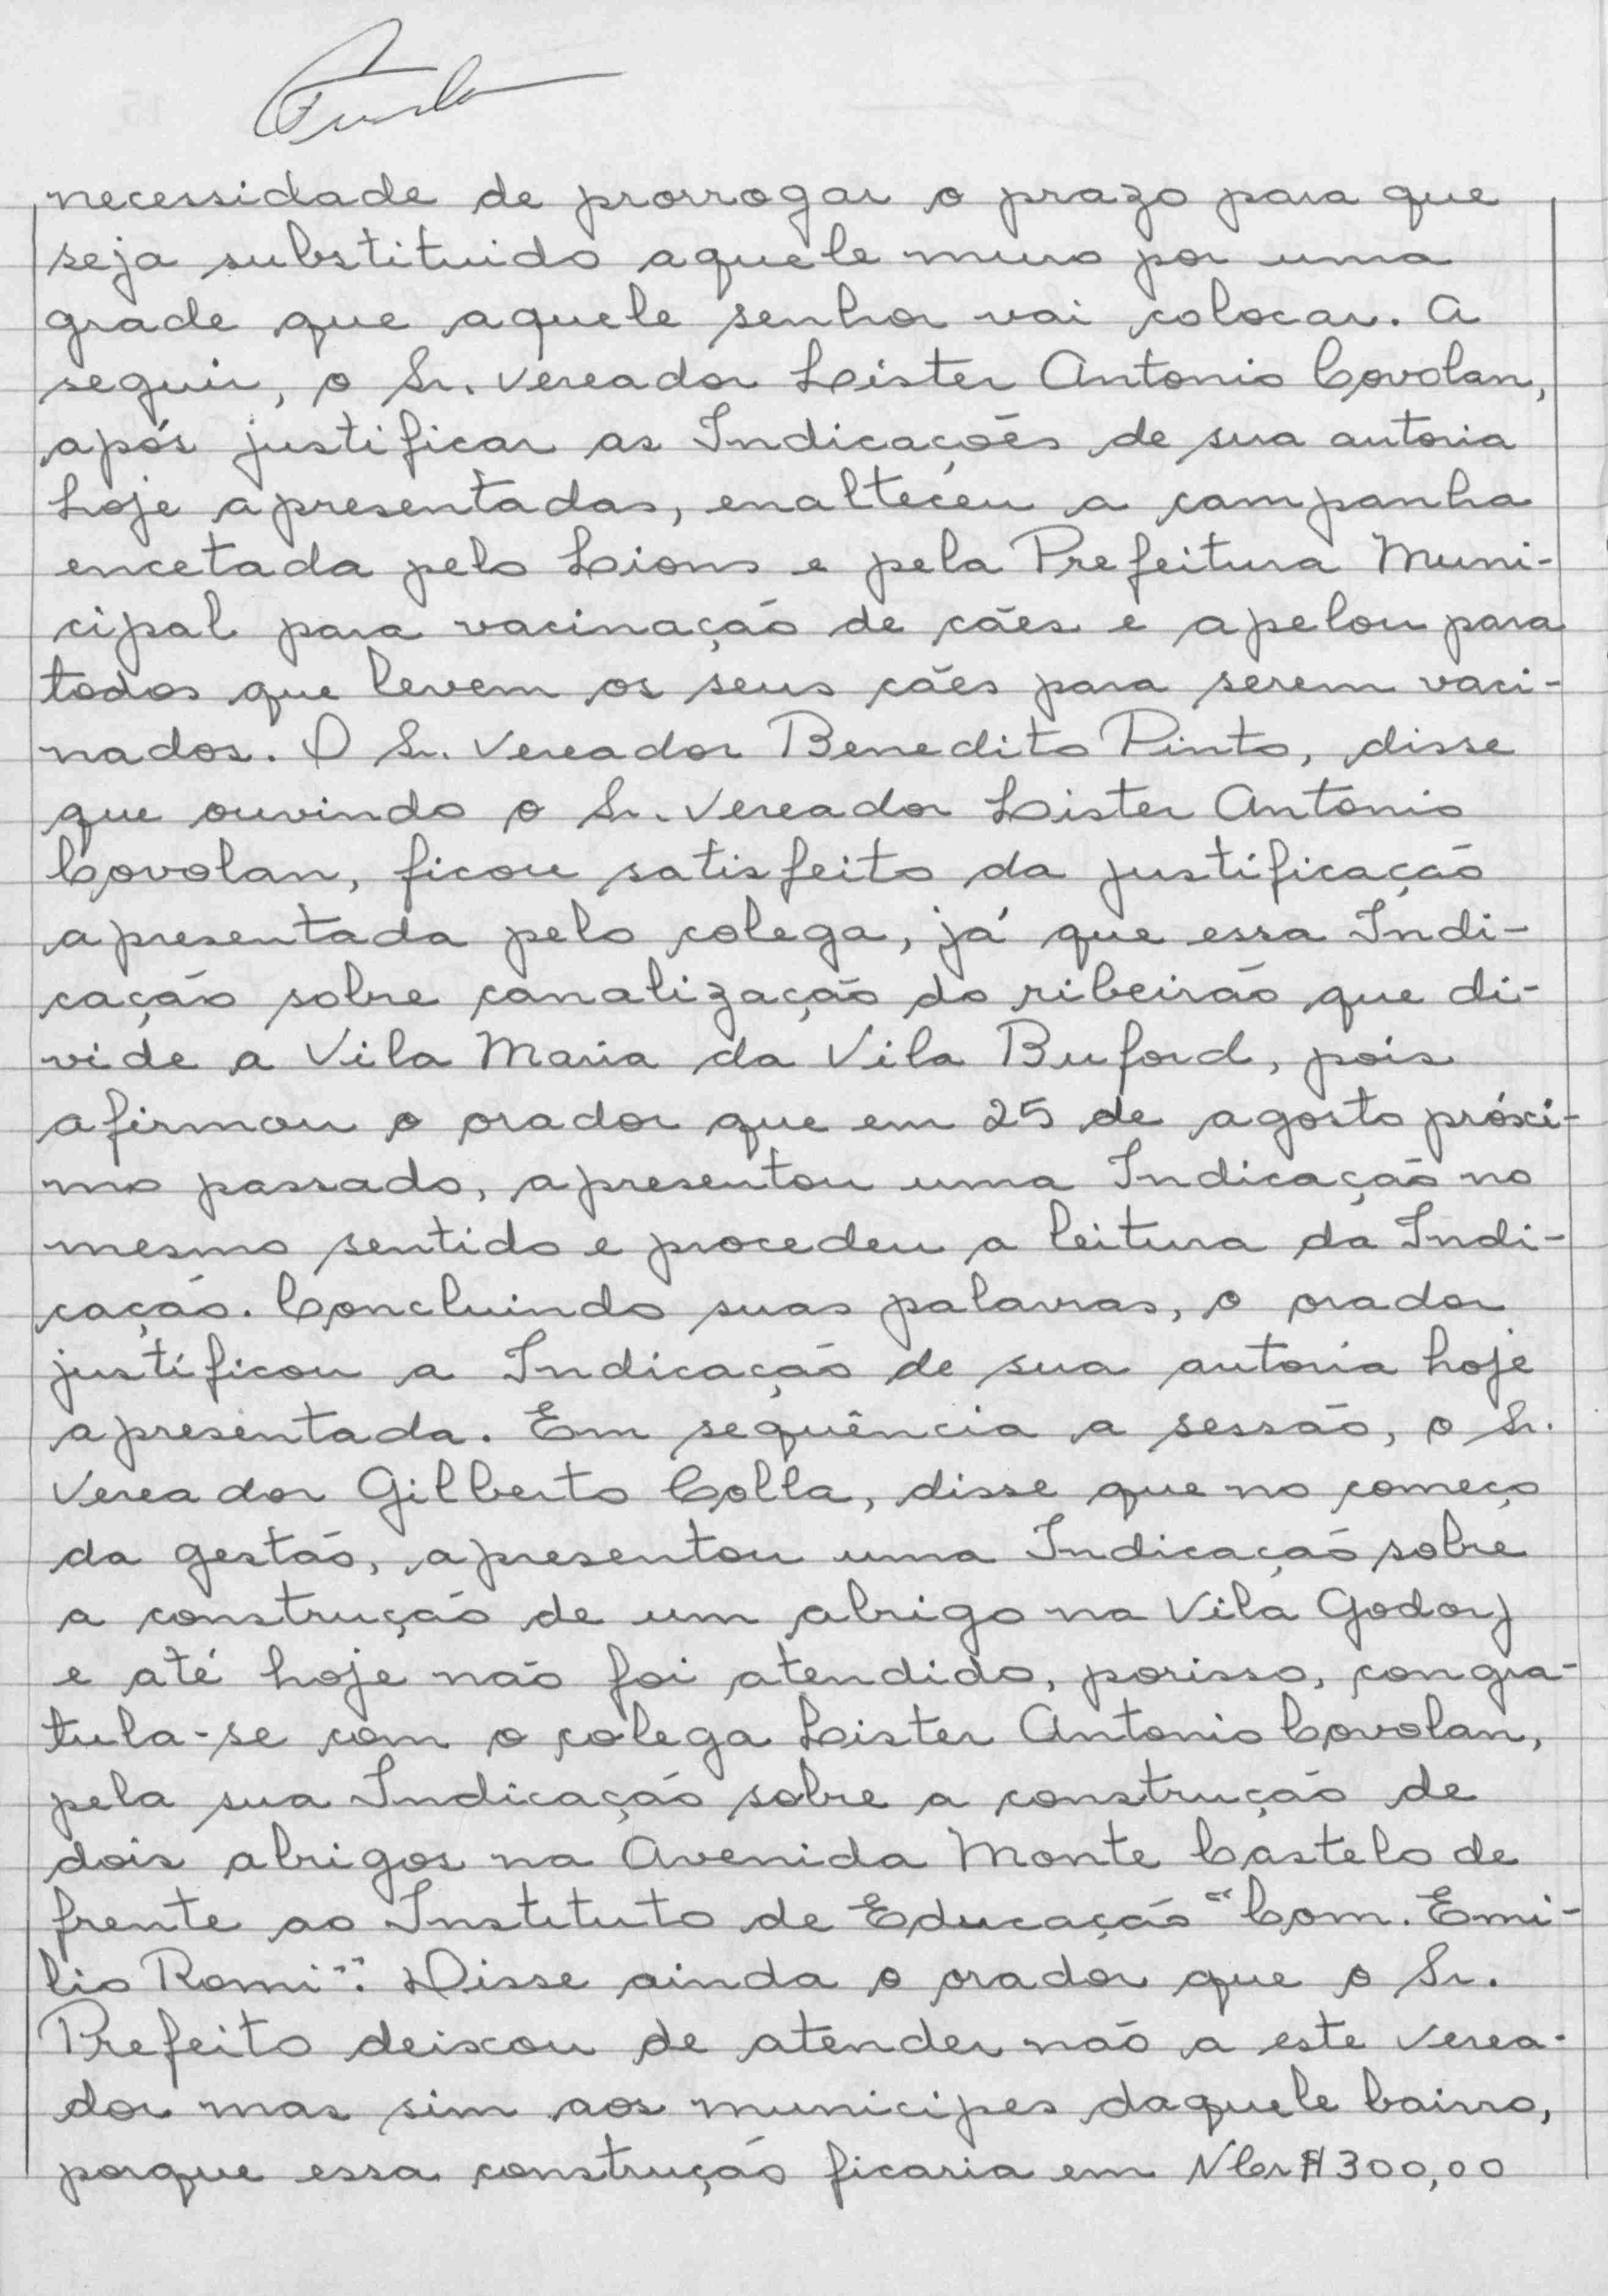 necessidade de prorrogar o prazo para que
seja substituido aquele muro por uma
grade que aquele senhor vai colocar. A
seguir, o Sr. Vereador Lister Antonio Covolan,
após justificar as Indicacões de sua autoria
hoje apresentadas, enalteceu a campanha
encetada pelo Lions e pela Prefeitura Muni-
cipal para vacinação de cães e apelou para
todos que levem os seus cães para serem vaci-
nados. O Sr. Vereador Benedito Pinto, disse
que ouvindo o Sr. Vereador Lister Antonio
Covolan, ficou satisfeito da justificação
apresentada pelo colega, já que essa Indi-
cação sobre canalização do ribeirão que di-
vide a Vila Maria da Vila Buford, pois
afirmou o orador que em 25 de agosto próxi-
mo passado, apresentou uma Indicação no
mesmo sentido e procedeu a leitura da Indi-
cação. Concluindo suas palavras, o orador
justificou a Indicação de sua autoria hoje
apresentada. Em sequência a sessão, o Sr.
Vereador Gilberto Colla, disse que no começo
da gestão, apresentou uma Indicação sobre
a construção de um abrigo na Vila Godoy
e até hoje não foi atendido, porisso, congra-
tula-se com o colega Lister Antonio Covolan,
pela sua Indicação sobre a construção de
dois abrigos na Avenida Monte Castelo de
frente ao Instituto de Educação "Com. Emi-
lio Romi". Disse ainda o orador que o Sr.
Prefeito deixou de atender não a este Verea-
dor mas sim aos municipes daquele bairro,
porque essa construção ficaria em NCr$300,00